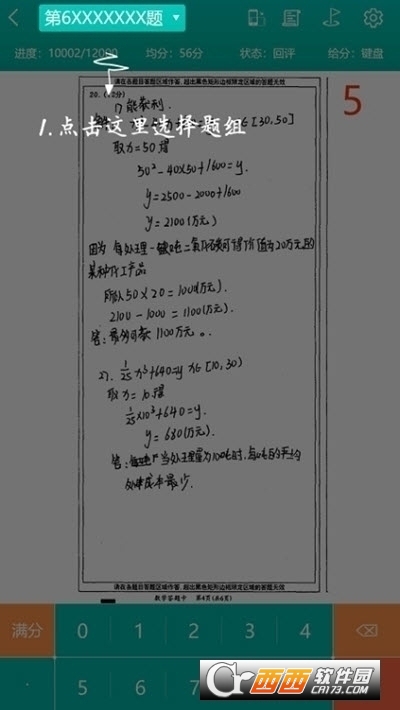 第6XXXXXXX题
进度：10002/12000 均分：56分 状态：回评 给分：键盘
请在各题目答题区域作答，超出黑色矩形边框限定区域的答题无效
5
20.（12分）
1) 能获利.
[30,50]
1.点击这里选择题组
取x=50得
50²-40×50+1600=y.
y=2500-2000+1600
y=2100(万元)
因为 每处理一吨二氧化碳可得价值为20万元的
某种化工产品
所以50×20=1000(万元).
2100-1000=1100(万元)
答:最多可获1100万元。
2). 1/25 x³+640=y x∈[10,30)
取x=10得
1/25×10³+640=y.
y=680(万元).
答: 当处理量为10吨时,每吨的平均
处理成本最少.
请在各题目答题区域作答，超出黑色矩形边框限定区域的答题无效
数学答题卡 第4页(共6页)
满分 0 1 2 3 4
. 5 6 7
西西软件园
CR173.COM